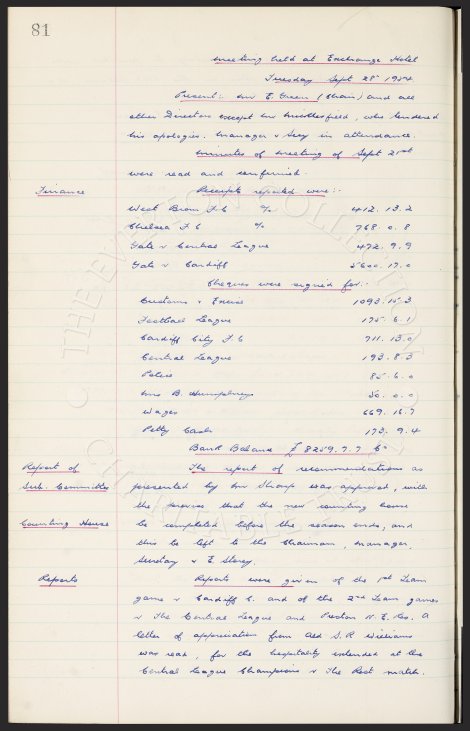 81
Meeting held at Exchange Hotel
Tuesday Sept 28th 1954
Present: Mr E. Green (Chair) and all
other Directors except Mr Micklesfield, who tendered
his apologies. Manager & Secy in attendance.
Minutes of Meeting of Sept 21st
were read and confirmed.
Finance
Receipts reported were:-
West Brom F C % 412. 13. 2
Chelsea F C % 768. 0. 8
Gate v Central League 472. 9. 9
Gate v Cardiff 5600. 17. 0
Cheques were signed for:-
Customs & Excise 1093. 15. 3
Football League 175. 6. 1
Cardiff City F C 711. 13. 0
Central League 193. 8. 3
Police 85. 6. 0
Mrs B. Humphreys 50. 0. 0
Wages 669. 16. 7
Petty Cash 173. 9. 4
Bank Balance £ 8259. 7. 7
Report of
Sub. Committee
The report of recommendations as
presented by Mr Sharp was approved, with
the proviso that the new counting house
Counting House
be completed before the season ends, and
this be left to the Chairman, Manager,
Secretary & E. Storey.
Reports
Reports were given of the 1st Team
game v Cardiff C. and of the 2nd Team games
v The Central League and Preston N. E. Res. A
letter of appreciation from Ald S. R Williams
was read, for the hospitality extended at the
Central League Champions v The Rest match.
THE EVERTON COLLECTION
CHARITABLE TRUST